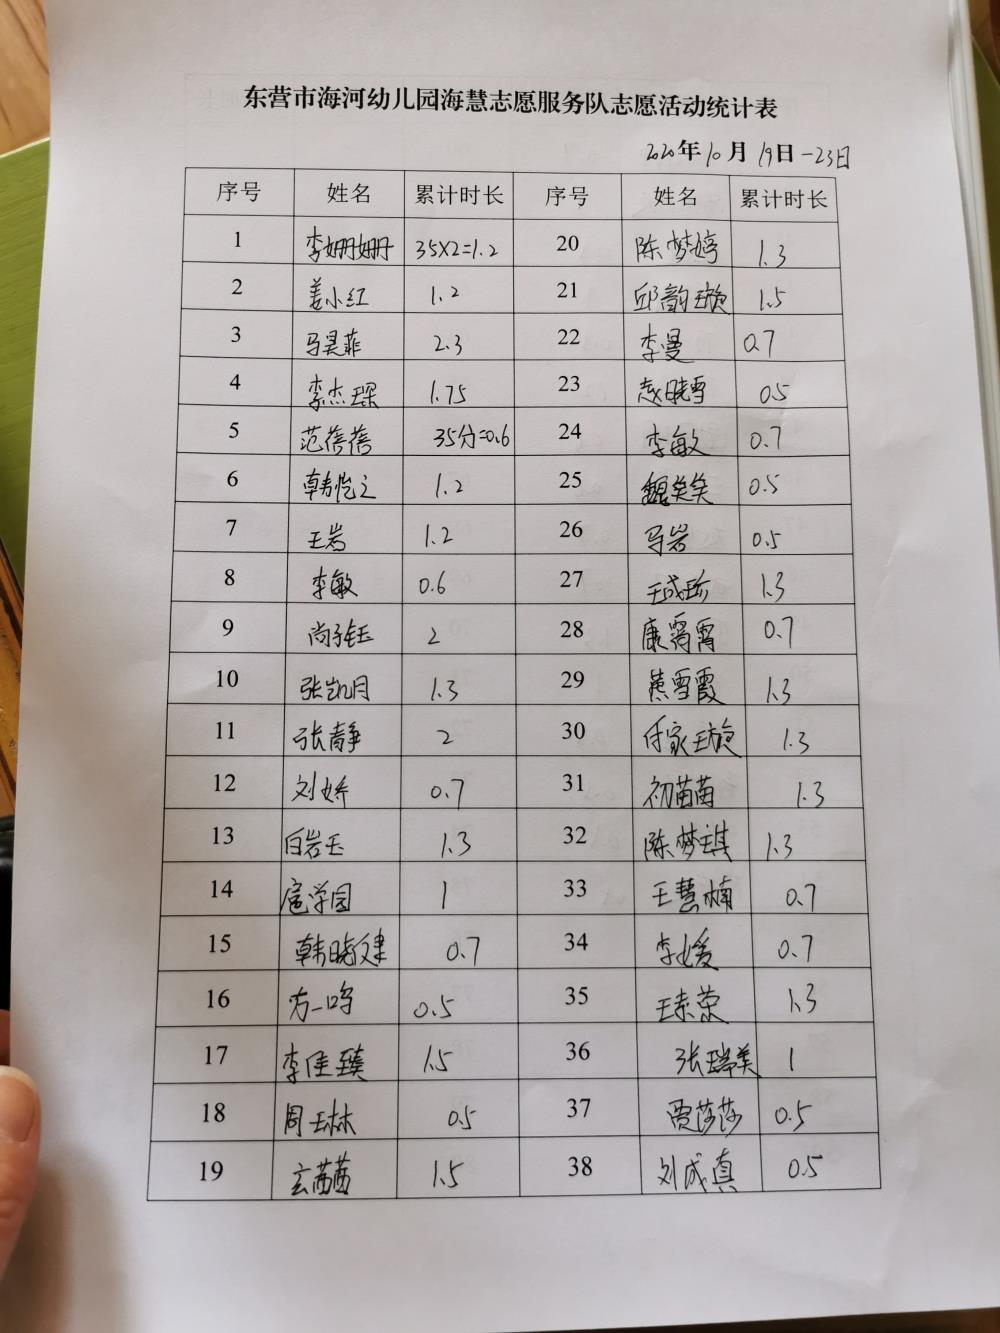 东营市海河幼儿园海慧志愿服务队志愿活动统计表
2020年10月19日-23日
序号 姓名 累计时长 序号 姓名 累计时长
1 李姗姗 35×2=1.2 20 陈梦婷 1.3
2 姜小红 1.2 21 邱韵璇 1.5
3 马昊菲 2.3 22 李曼 0.7
4 李杰琛 1.75 23 赵晓雪 0.5
5 范蓓蓓 35分=0.6 24 李敏 0.7
6 韩恺之 1.2 25 魏笑笑 0.5
7 王岩 1.2 26 马岩 0.5
8 李敏 0.6 27 王成珍 1.3
9 尚子钰 2 28 康霄霄 0.7
10 张凯月 1.3 29 燕雪霞 1.3
11 张静 2 30 付家璇 1.3
12 刘婷 0.7 31 初苗苗 1.3
13 白岩玉 1.3 32 陈梦琪 1.3
14 扈学园 1 33 王慧楠 0.7
15 韩晓健 0.7 34 李媛 0.7
16 方一鸣 0.5 35 王素荣 1.3
17 李佳臻 1.5 36 张瑞美 1
18 周玉林 0.5 37 贾莎莎 0.5
19 玄茜茜 1.5 38 刘成真 0.5